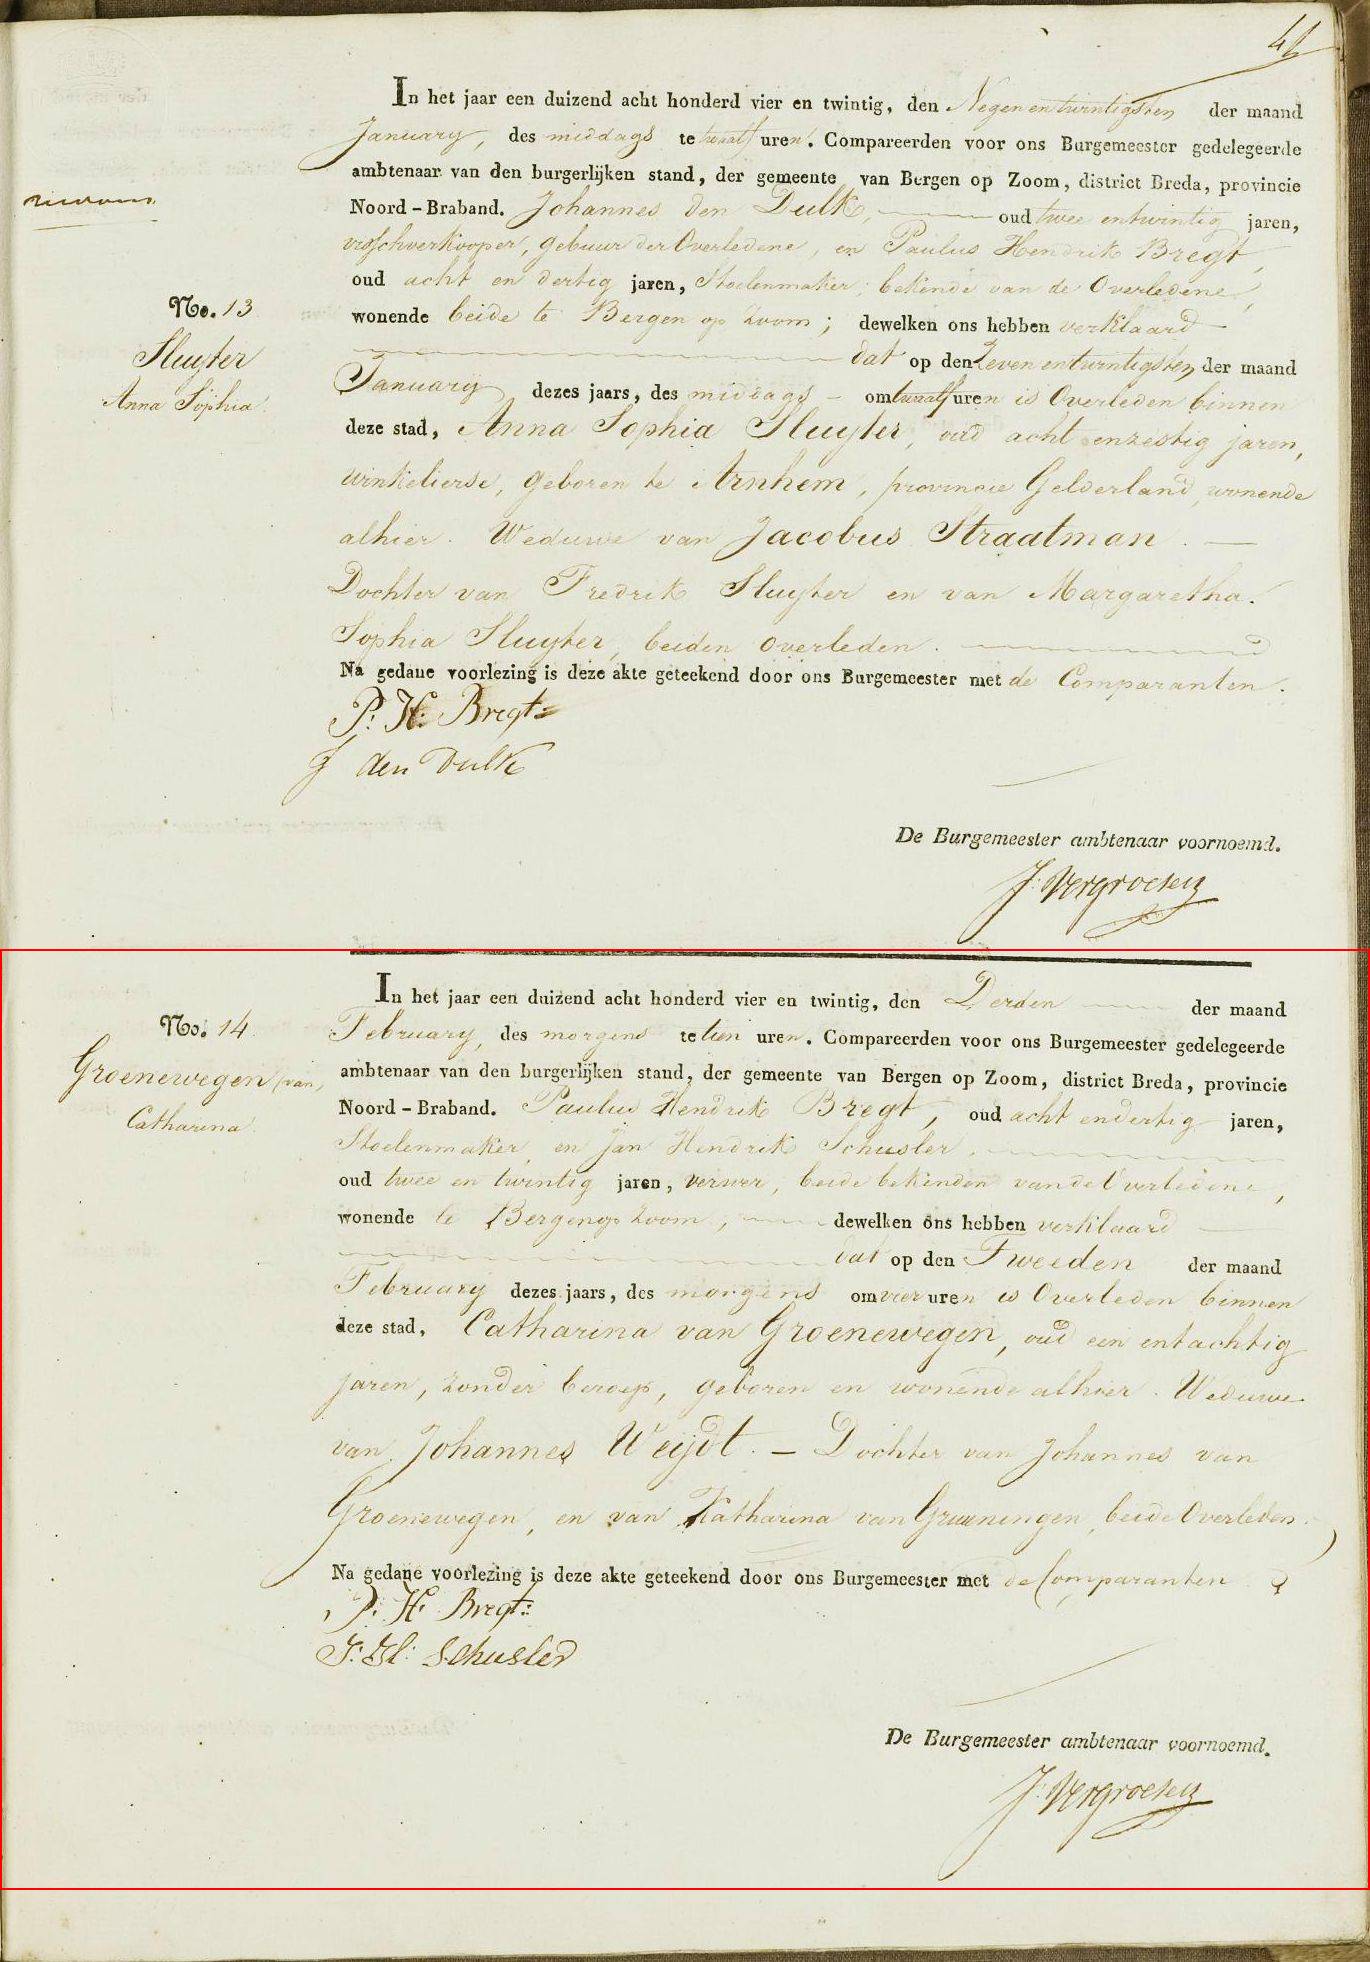 44
In het jaar een duizend acht honderd vier en twintig, den Negen en twintigsten der maand
January, des middags te twaalf uren. Compareerden voor ons Burgemeester gedelegeerde
ambtenaar van den burgerlijken stand, der gemeente van Bergen op Zoom, district Breda, provincie
Noord-Braband. Johannes den Dulk, oud twee en twintig jaren,
vischverkooper, gebuur der Overledene, en Paulus Hendrik Bregt,
oud acht en dertig jaren, Stoelenmaker, bekende van de Overledene,
No. 13
wonende beide te Bergen op Zoom; dewelken ons hebben verklaard
Sluyter
dat op den Zeven en twintigsten der maand
Anna Sophia.
January dezes jaars, des middags om twaalf uren is Overleden binnen
deze stad, Anna Sophia Sluyter, oud acht en zestig jaren,
winkelierse, geboren te Arnhem, provincie Gelderland, wonende
alhier. Weduwe van Jacobus Straatman. —
Dochter van Fredrik Sluyter en van Margaretha
Sophia Sluyter, beiden overleden.
Na gedane voorlezing is deze akte geteekend door ons Burgemeester met de Comparanten.
P: H: Bregt
J den Dulk
De Burgemeester ambtenaar voornoemd.
J. Vergroesen
In het jaar een duizend acht honderd vier en twintig, den Derden der maand
No. 14
February, des morgens te tien uren. Compareerden voor ons Burgemeester gedelegeerde
Groenewegen (van)
ambtenaar van den burgerlijken stand, der gemeente van Bergen op Zoom, district Breda, provincie
Catharina.
Noord-Braband. Paulus Hendrik Bregt, oud acht en dertig jaren,
Stoelenmaker, en Jan Hendrik Schusler,
oud twee en twintig jaren, verwer, beide bekenden van de Overledene,
wonende te Bergen op Zoom, dewelken ons hebben verklaard
dat op den Tweeden der maand
February dezes jaars, des morgens om vier uren is Overleden binnen
deze stad, Catharina van Groenewegen, oud een en tachtig
jaren, zonder beroep, geboren en wonende alhier. Weduwe
van Johannes Weijdt. — Dochter van Johannes van
Groenewegen, en van Katharina van Grueningen, beide Overleden.
Na gedane voorlezing is deze akte geteekend door ons Burgemeester met de Comparanten
P: H: Bregt
J: H: Schusler
De Burgemeester ambtenaar voornoemd.
J. Vergroesen